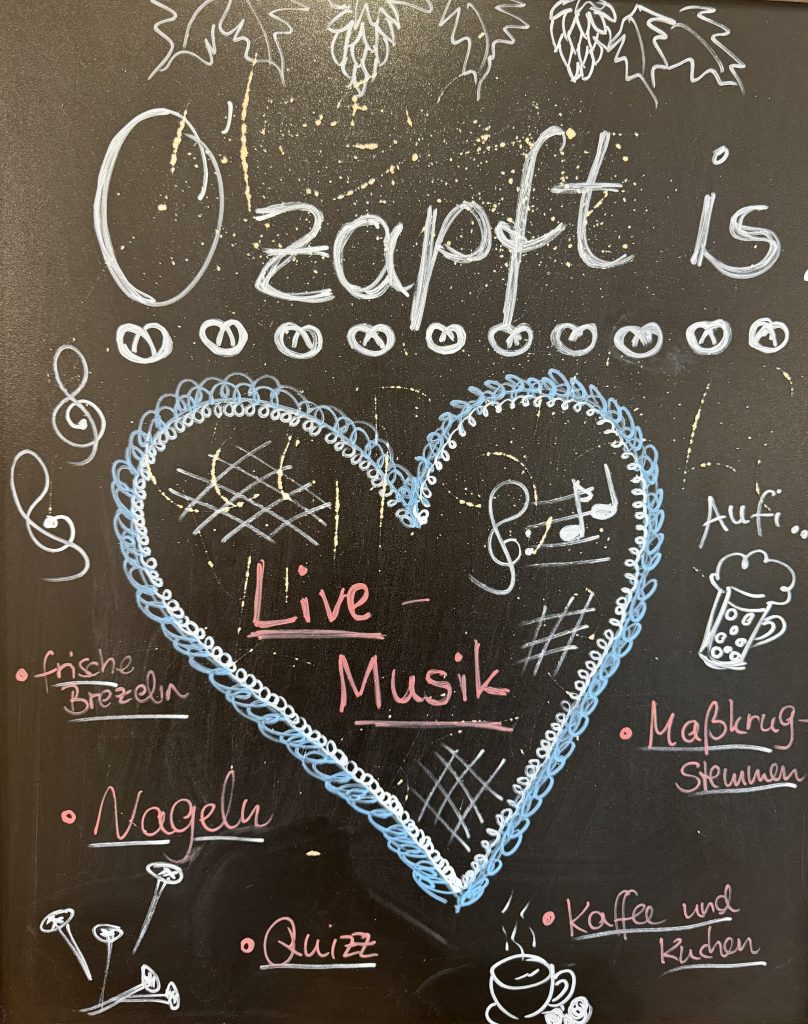 O'zapft is
Aufi..
Live -
Musik
• frische
Brezeln
• Maßkrug-
Stemmen
• Nageln
• Quizz
• Kaffee und
Kuchen